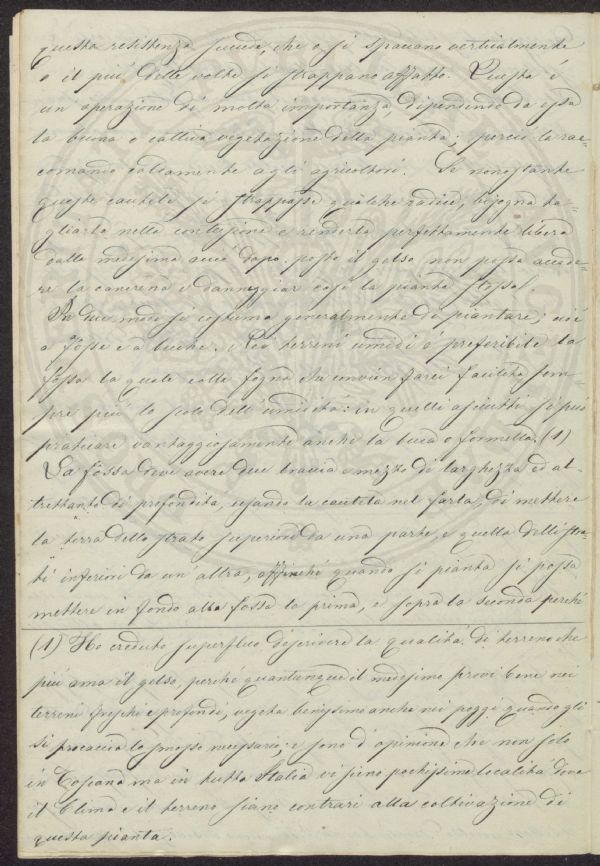 questa resistenza succede, che o si spaccano verticalmente
o il più delle volte si strappano affatto. Questa è
un operazione di molta importanza dipendendo da essa
la buona o cattiva vegetazione della pianta; perciò la rac=
comando caldamente agli agricoltori. Se nonostante
queste cautele si strappasse qualche radice, bisogna ta=
gliarla nella contusione e renderla perfettamente libera
dalla medesima acciò dopo posto il gelso non possa accade=
re la cancrena e danneggiar così la pianta stessa.
In due modi si costuma generalmente di piantare; cioè
a fosse e a buche. Nei terreni umidi è preferibile la
fossa la quale colla fogna che convien farci facilita sem=
pre più lo scolo dell'umidità: in quelli asciutti si può
praticare vantaggiosamente anche la buca o formella. (1)
La fossa deve avere due braccia e mezzo di larghezza ed al=
trettanto di profondità, usando la cautela nel farla, di mettere
la terra dello strato superiore da una parte, e quella delli stra=
ti inferiori da un'altra, affinché quando si pianta si possa
mettere in fondo alla fossa la prima, e sopra la seconda perché
(1) Ho creduto superfluo descrivere la qualità di terreno che
più ama il gelso, perché quantunque il medesimo provi bene nei
terreni freschi e profondi, vegeta benissimo anche nei poggi quando gli
si procaccia lo smosso necessario; e sono d'opinione che non solo
in Toscana ma in tutta Italia vi sieno pochissime località dove
il Clima e il terreno siano contrari alla coltivazione di
questa pianta.